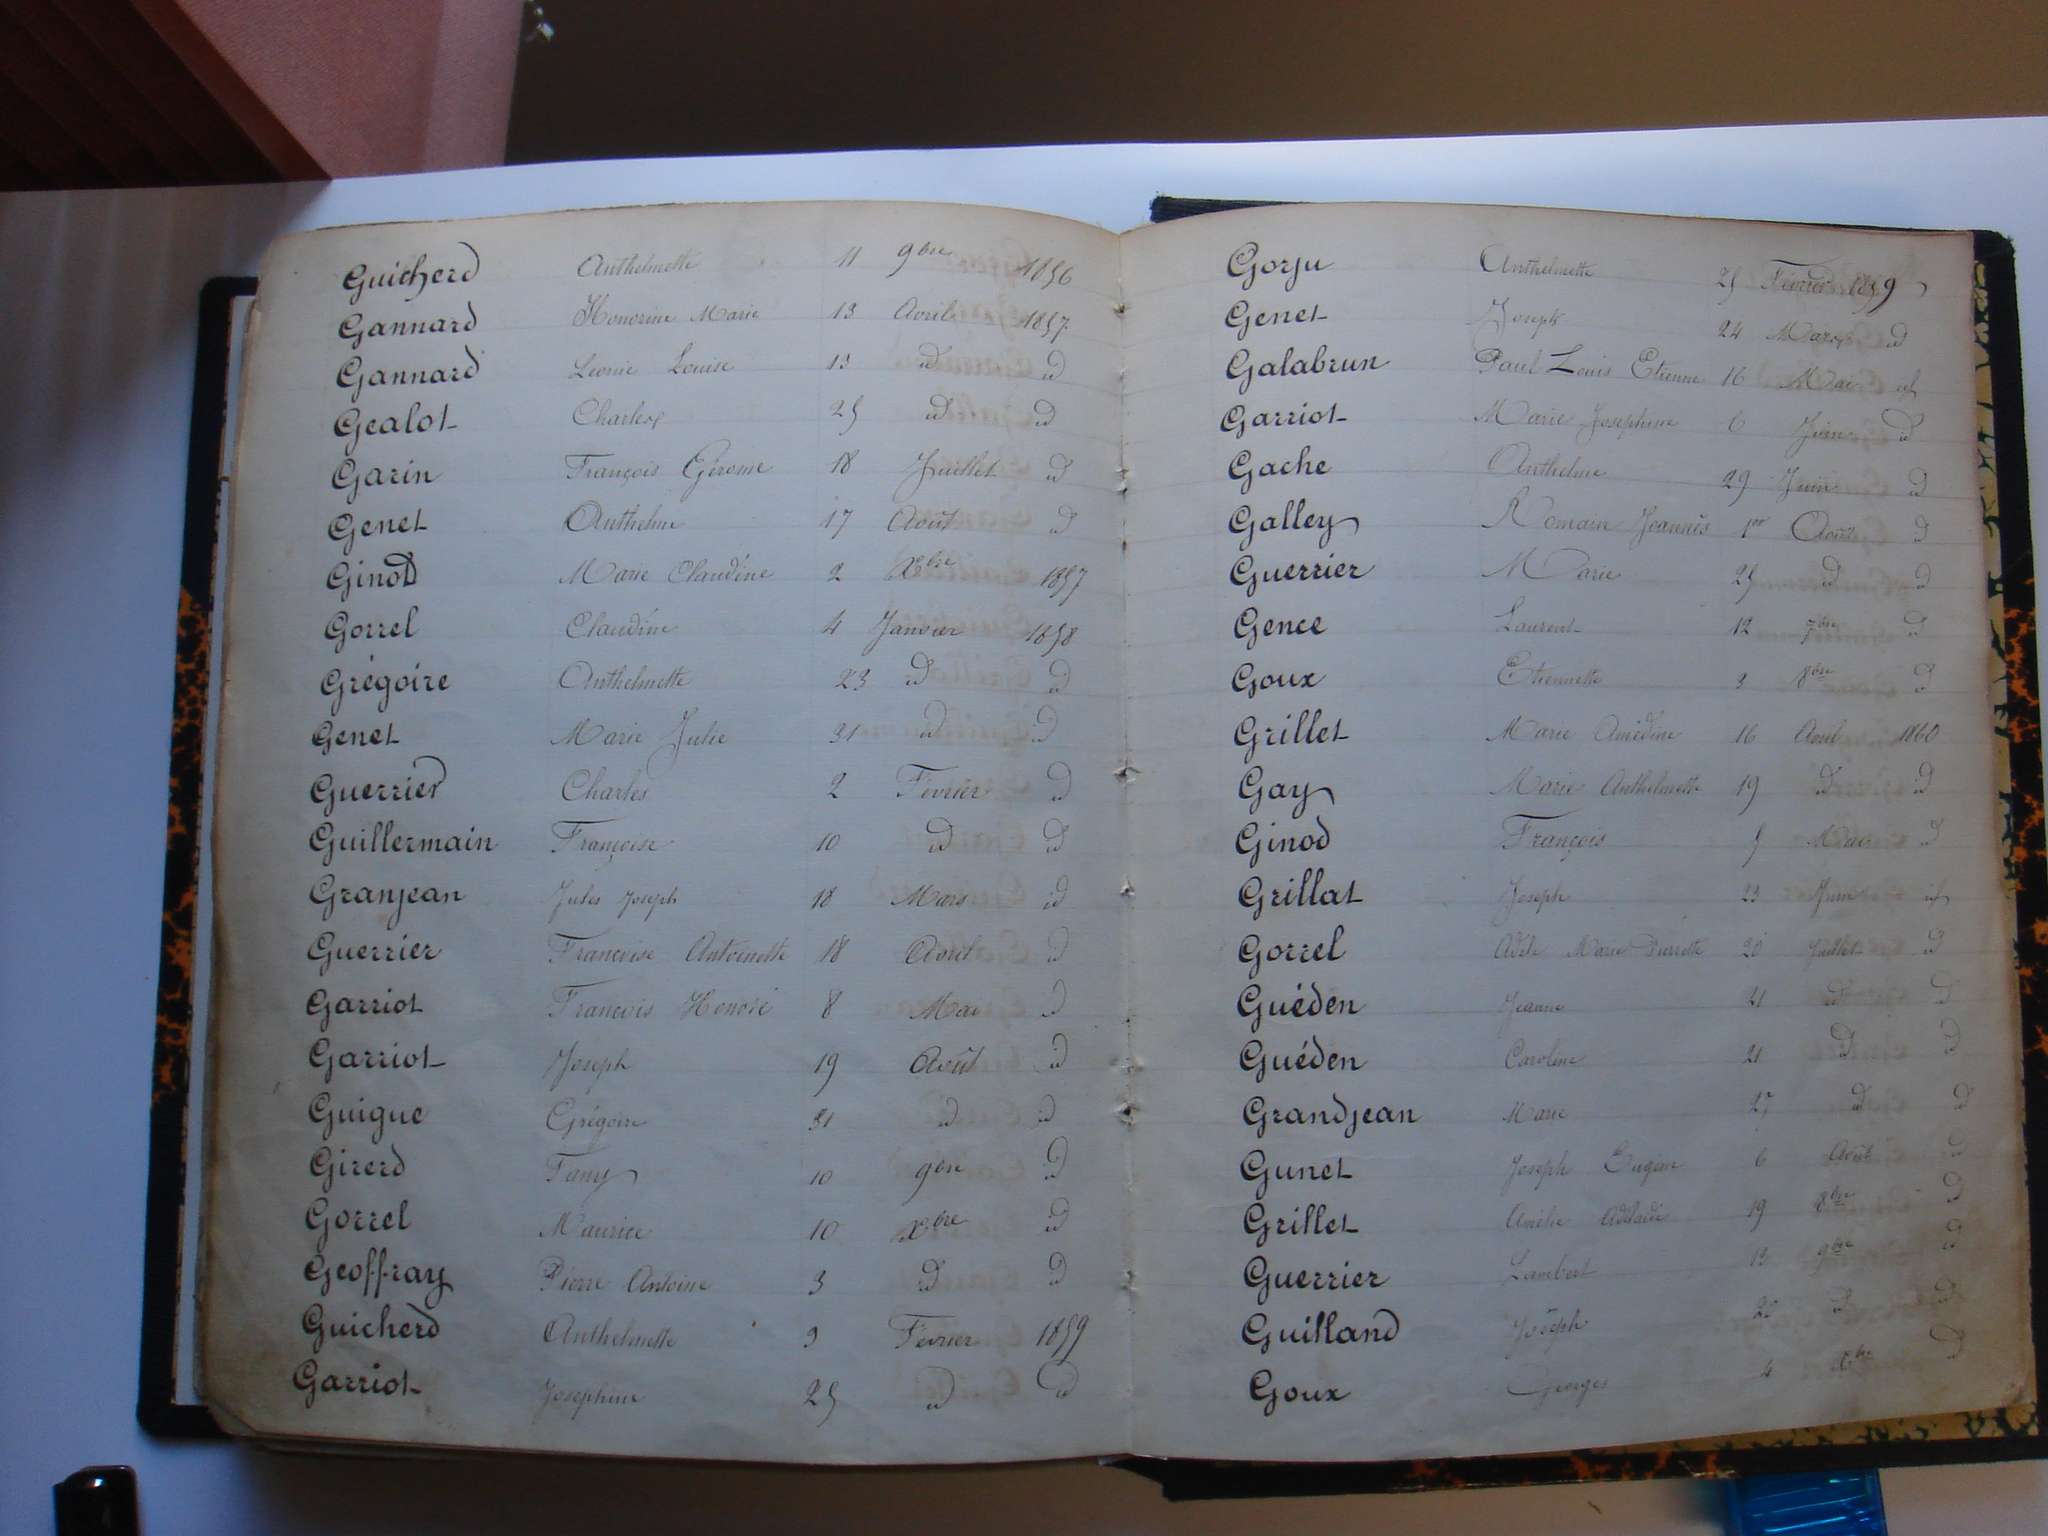 Guicherd Anthelmette 11 9bre 1856
Gannard Honorine Marie 13 Avril 1857
Gannard Léonie Louise 13 id id
Gealot Charles 25 id id
Garin François Gérome 18 Juillet id
Genet Anthelme 17 Août id
Ginod Marie Claudine 2 Xbre 1857
Gorrel Claudine 4 Janvier 1858
Grégoire Anthelmette 23 id id
Genet Marie Julie 31 id id
Guerrier Charles 2 Février id
Guillermain Françoise 10 id id
Granjean Jules Joseph 18 Mars id
Guerrier Francoise Antoinette 18 Avril id
Garriot Francois Honoré 8 Mai id
Garriot Joseph 19 Août id
Guigue Grégoire 31 id id
Girerd Fany 10 9bre id
Gorrel Maurice 10 Xbre id
Geoffray Pierre Antoine 3 id id
Guicherd Anthelmette 9 Février 1859
Garriot Joséphine 25 id id
Gorju Anthelmette 25 Février 1859
Genet Joseph 24 Mars id
Galabrun Paul Louis Etienne 16 Mai id
Garriot Marie Josephine 6 Juin id
Gache Anthelme 29 Juin id
Galley Romain Joannès 1er Août id
Guerrier Marie 25 id id
Gence Laurent 12 7bre id
Goux Etiennette 3 8bre id
Grillet Marie Amédine 16 Avril 1860
Gay Marie Anthelmette 19 id id
Ginod François 5 Mai id
Grillat Joseph 23 Juin id
Gorrel Adèle Marie Pierrette 20 Juillet id
Guéden Jeanne 21 id id
Guéden Caroline 21 id id
Grandjean Marie 27 id id
Gunet Joseph Eugène 6 Août id
Grillet Amélie Adélaïde 19 8bre id
Guerrier Lambert 13 9bre id
Guilland Joseph id id
Goux Georges 4 Xbre id